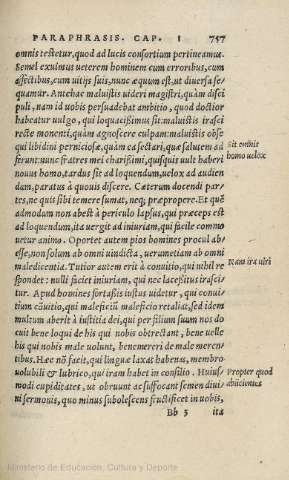 PARAPHRASIS. CAP. I 757
omnis testetur, quod ad lucis consortium pertineamus.
Semel exuimus ueterem hominem cum erroribus, cum
affectibus, cum uitijs suis, nunc æquum est, ut diuersa se=
quamur. Antehac maluistis uideri magistri, quàm disci
puli, nam id uobis persuadebat ambitio, quod doctior
habeatur uulgo, qui loquacissimus sit: maluistis irasci
recte monenti, quàm agnoscere culpam: maluistis obse
qui libidini perniciosæ, quàm ea sectari, quæ salutem ad
ferunt: nunc fratres mei charissimi, quisquis uult haberi
nouus homo, tardus sit ad loquendum, uelox ad audien
dum, paratus à quouis discere. Cæterum docendi par=
tes, ne quis sibi temere sumat, neq; præpropere. Et quē
admodum non abest à periculo lapsus, qui præceps est
ad loquendum, ita uergit ad iniuriam, qui facile commo
uetur animo. Oportet autem pios homines procul ab=
esse, non solum ab omni uindicta, uerumetiam ab omni
maledicentia. Tutior autem erit à conuitio, qui nihil re
spondet: nulli faciet iniuriam, qui nec lacessitus irasci=
tur. Apud homines fortassis iustus uidetur, qui conui=
tium cōuitio, qui maleficiū maleficio retaliat, sed idem
multum aberit à iustitia dei, qui per filium suum nos do
cuit bene loqui de his qui nobis obtrectant, bene uelle
his qui nobis male uolunt, benemereri de male meren=
tibus. Hæc nō facit, qui linguæ laxas habenas, membro
uolubili & lubrico, qui iram habet in consilio. Huius=
modi cupiditates, ut obruunt ac suffocant semen diui=
ni sermonis, quo minus subolescens fructificet in uobis,
Bb 3 ita
Sit omnis
homo uelox
Nam ira uiri
Propter quod
abiicientes
Ministerio de Educación, Cultura y Deporte